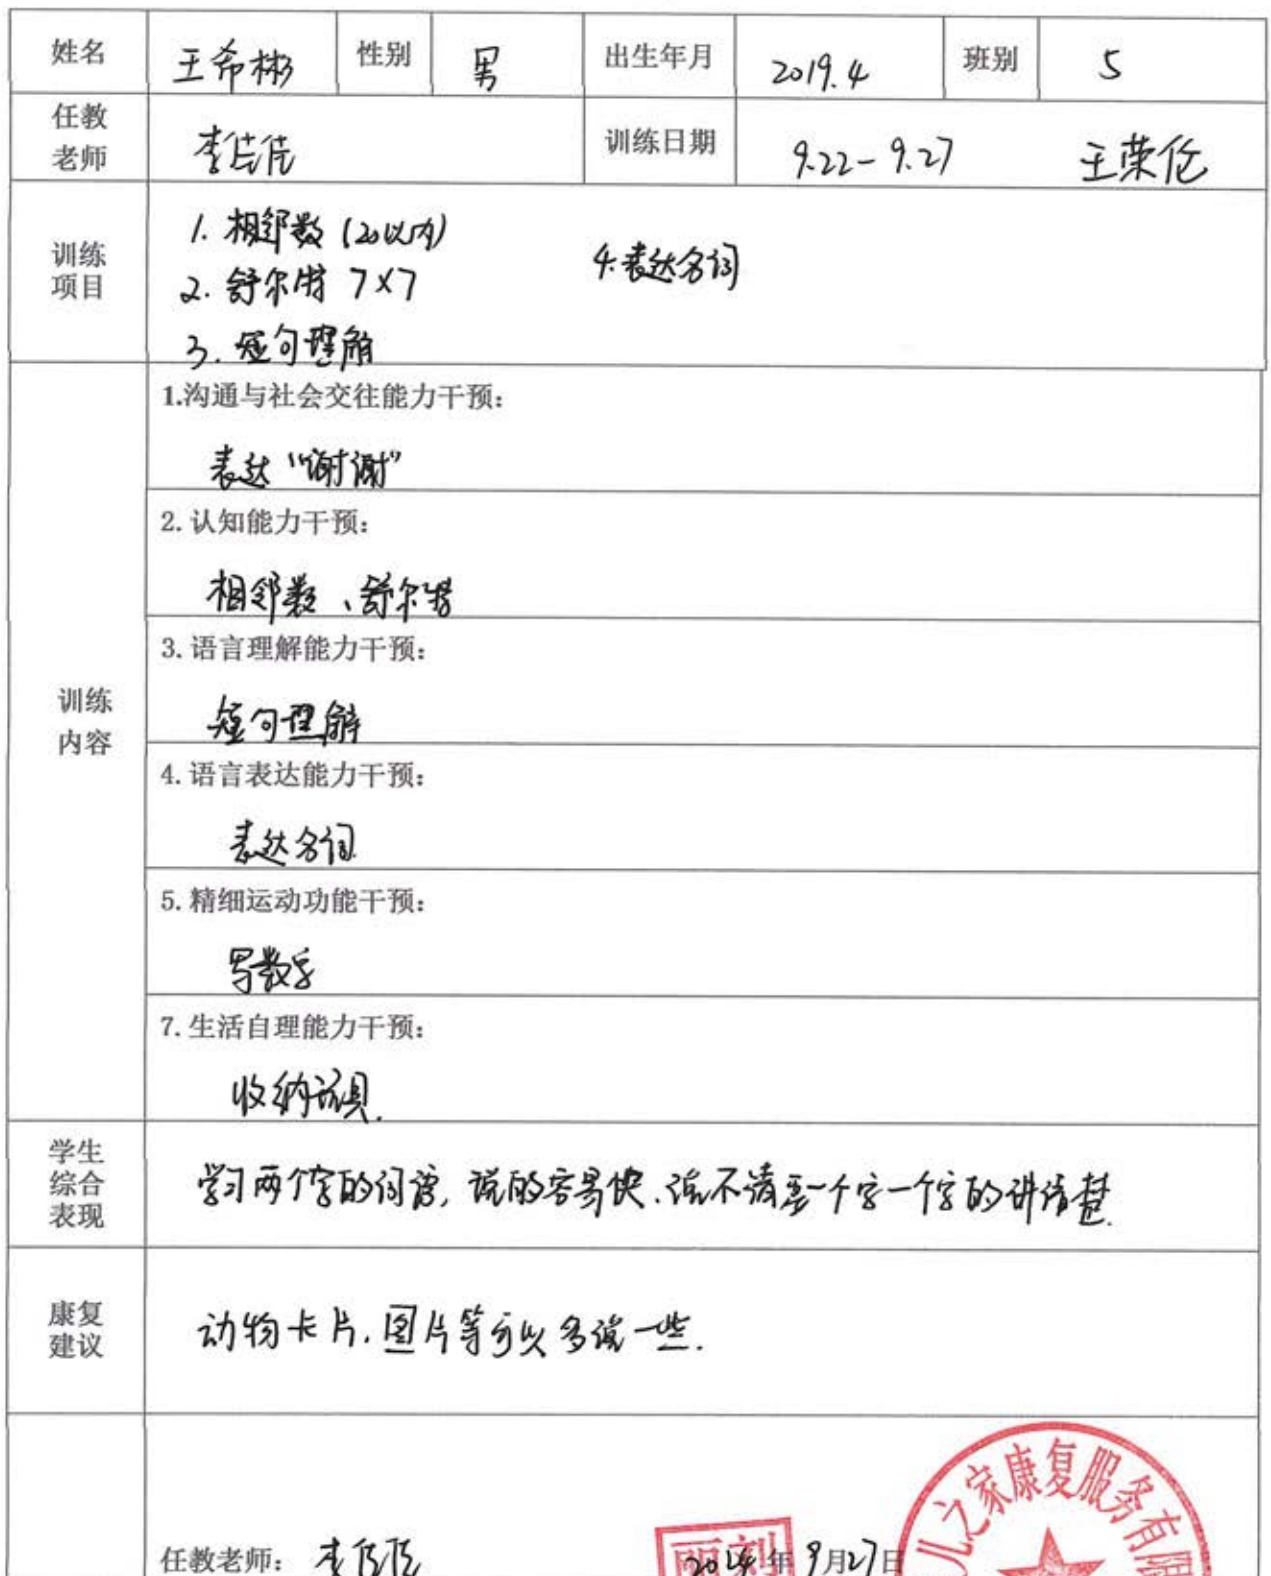 姓名 王希彬 性别 男 出生年月 2019.4 班别 5
任教老师 李佳佳 训练日期 9.22-9.27 王荣伦
训练项目
1. 相邻数 (20以内)
4.表达名词
2. 舒尔特 7×7
3. 短句理解
训练内容
1.沟通与社会交往能力干预:
表达“谢谢”
2.认知能力干预:
相邻数、舒尔特
3.语言理解能力干预:
短句理解
4.语言表达能力干预:
表达名词
5.精细运动功能干预:
写数字
7.生活自理能力干预:
收纳玩具.
学生综合表现
学习两个字的词语, 说的容易快、说不清要一个字一个字的讲清楚.
康复建议
动物卡片.图片等可以多说一些.
任教老师: 李佳佳 2024年9月27日
儿之家康复服务有限